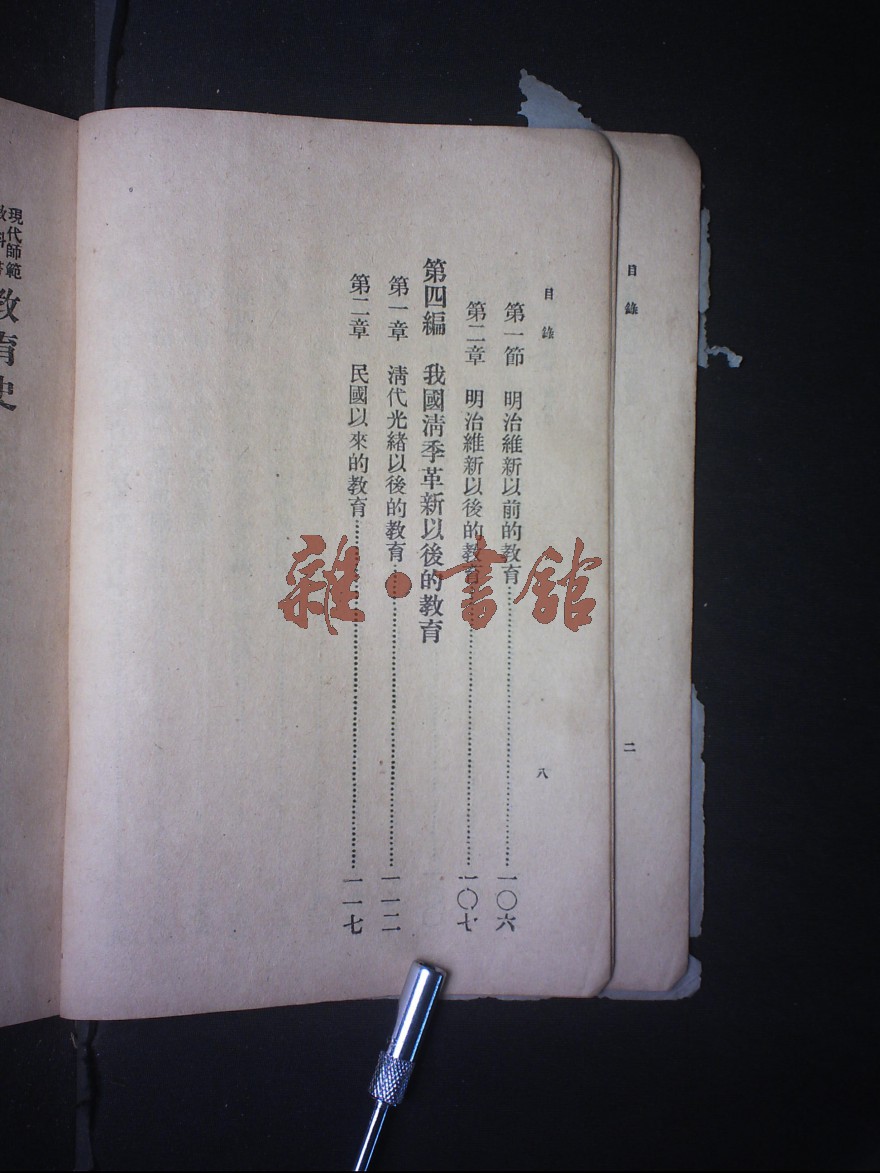 目錄
二
目錄
八
第一節 明治維新以前的教育⋯⋯一〇六
第二章 明治維新以後的教育⋯⋯一〇七
第四編 我國清季革新以後的教育
第一章 清代光緒以後的教育⋯⋯一一二
第二章 民國以來的教育⋯⋯一一七
現代師範
教科書
教育史
雜·書館